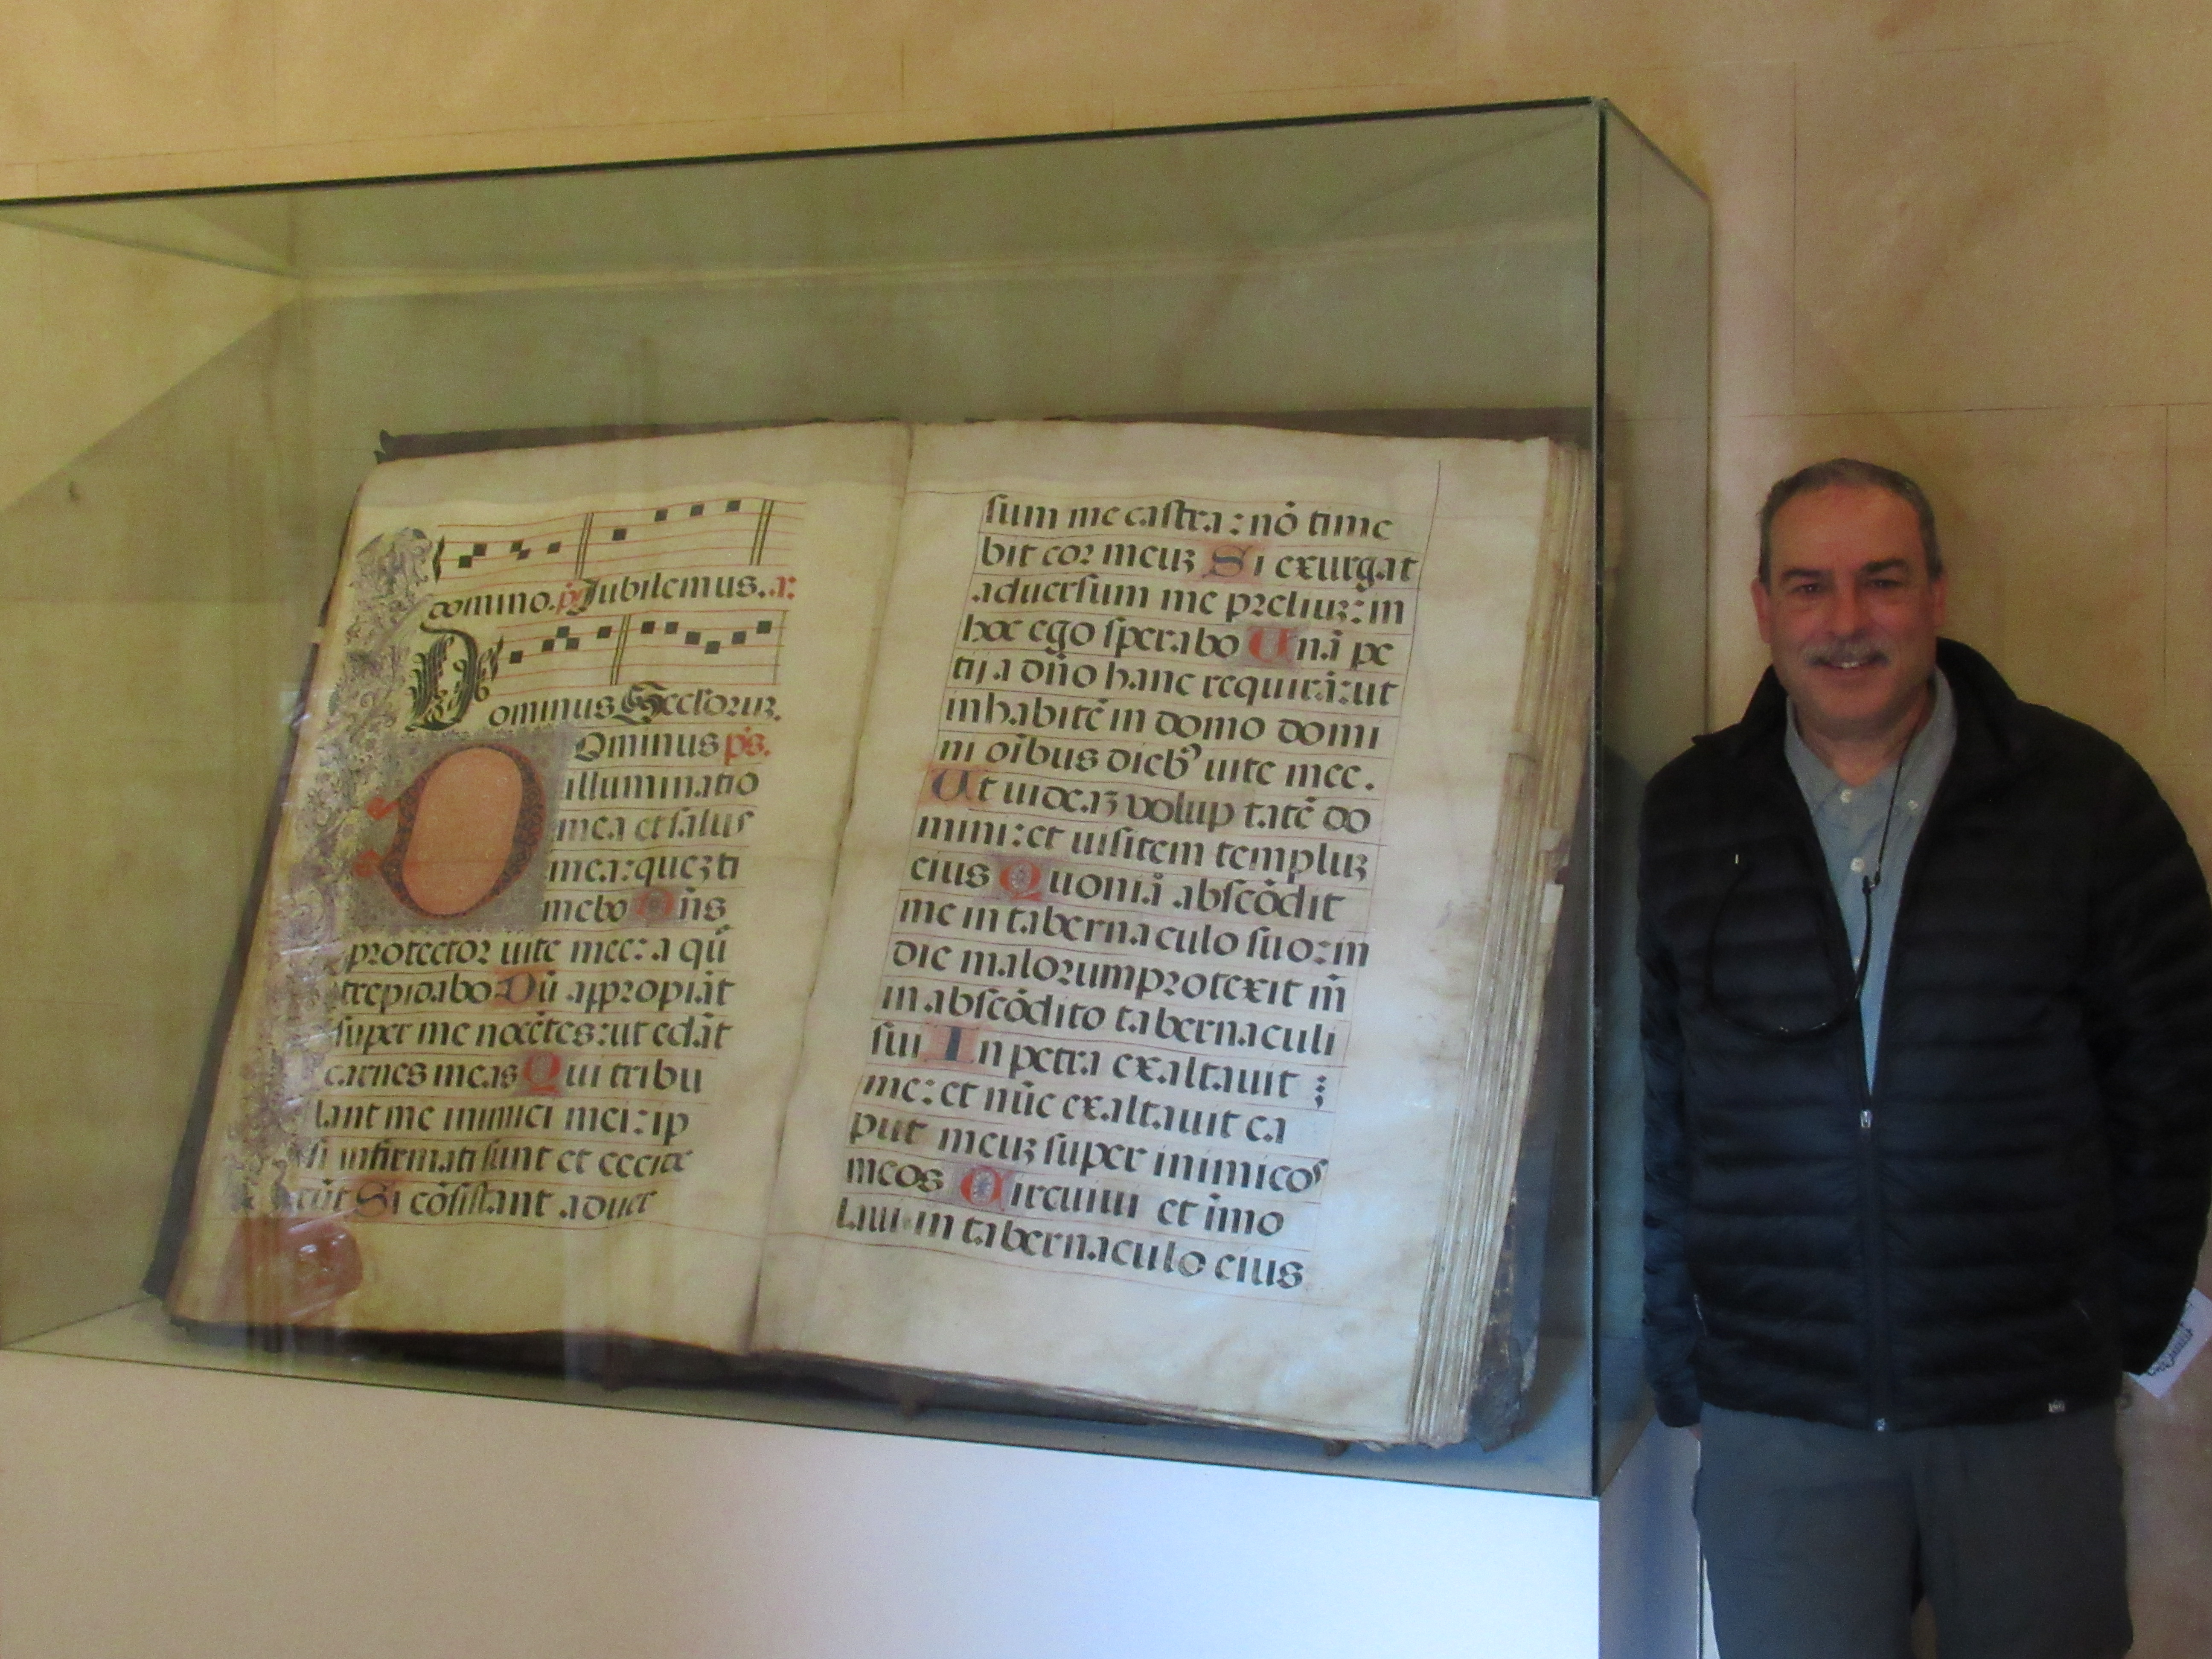 domino. ps Jubilemus. a:
Dominus Secloruz.
Dominus ps.
illuminatio
mea et salus
mea: quez ti
mebo Dñs
protector uite mee: a qũ
trepidabo Dũ appropiãt
super me nocẽtes: ut edãt
carnes meas Qui tribu
lant me inimici mei: ip
si infirmati sunt et cecide
rũt Si cõsistant aduer
sum me castra: nõ time
bit cor meuz Si exurgat
aduersum me preliuz: in
hoc ego sperabo Unã pe
tij a dño hanc requirã: ut
inhabitẽ in domo domi
ni oĩbus dieb9 uite mee.
Ut uideaz voluptatẽ do
mini: et uisitem templuz
eius Quoniã abscõdit
me in tabernaculo suo: in
die malorum protexit m̃
in abscõdito tabernaculi
sui In petra exaltauit
me: et nũc exaltauit ca
put meuz super inimicos
meos Circuiui et ĩmo
laui in tabernaculo eius